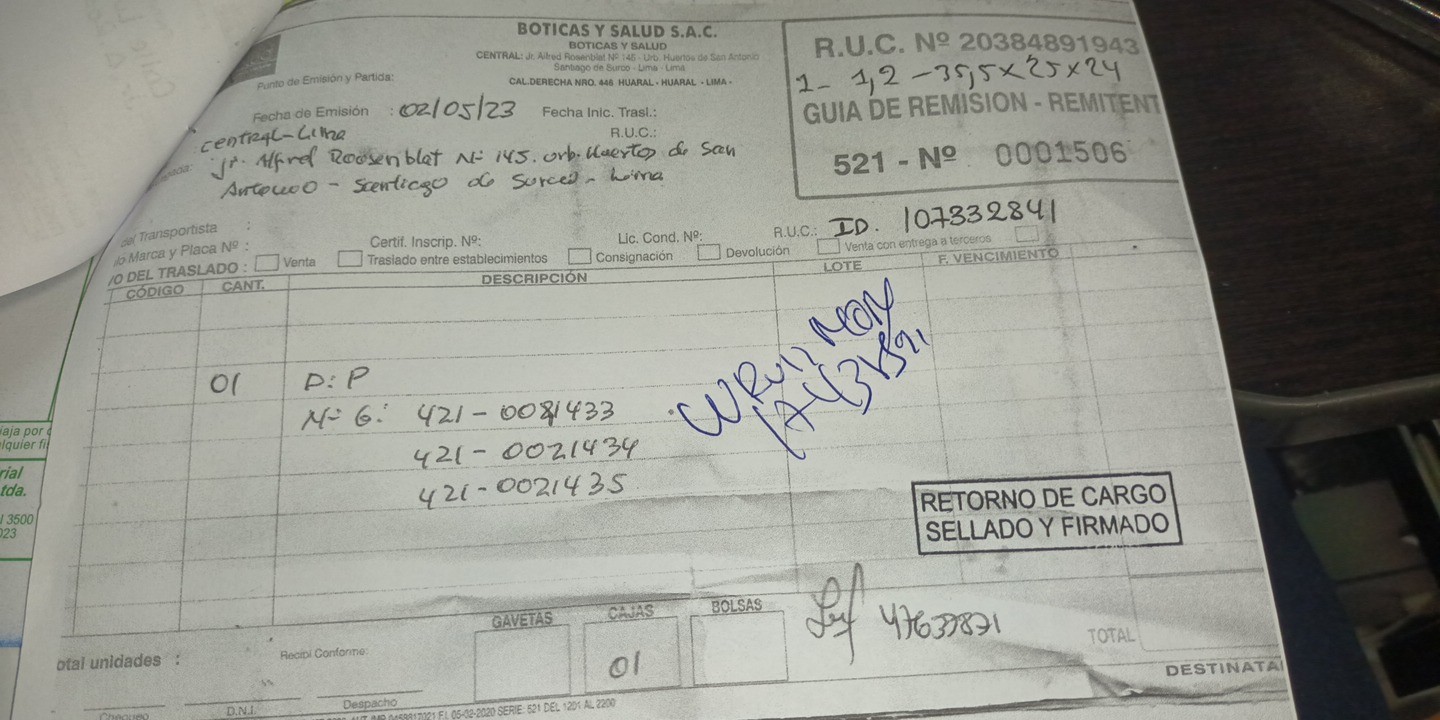 BOTICAS Y SALUD S.A.C.
BOTICAS Y SALUD
CENTRAL: Jr. Alfred Rosenblat Nº 145 - Urb. Huertos de San Antonio
Santiago de Surco - Lima - Lima
CAL.DERECHA NRO. 446 HUARAL - HUARAL - LIMA -
Punto de Emisión y Partida:
R.U.C. Nº 20384891943
1- 1,2 - 35,5x25x24
GUIA DE REMISION - REMITENT
521 - Nº 0001506
Fecha de Emisión : 02/05/23 Fecha Inic. Trasl.:
Central-Lima R.U.C.:
Jr. Alfred Roosenblat Nº 145. Urb. Huertos de San
Antonio - Santiago de Surco - Lima
del Transportista :
Marca y Placa Nº : Certif. Inscrip. Nº: Lic. Cond. Nº: R.U.C.: ID. 107332841
O DEL TRASLADO : Venta Traslado entre establecimientos Consignación Devolución Venta con entrega a terceros
CÓDIGO CANT. DESCRIPCIÓN LOTE F. VENCIMIENTO
01 D: P
Nº G: 421-0021433
421-0021434
421-0021435
RETORNO DE CARGO
SELLADO Y FIRMADO
GAVETAS CAJAS BOLSAS
01
47637871
TOTAL
otal unidades : Recibí Conforme:
DESTINATA
Chequeo D.N.I. Despacho
EL 05-02-2020 SERIE: 521 DEL 1201 AL 2200
iaja por
lquier fi
rial
tda.
l 3500
023